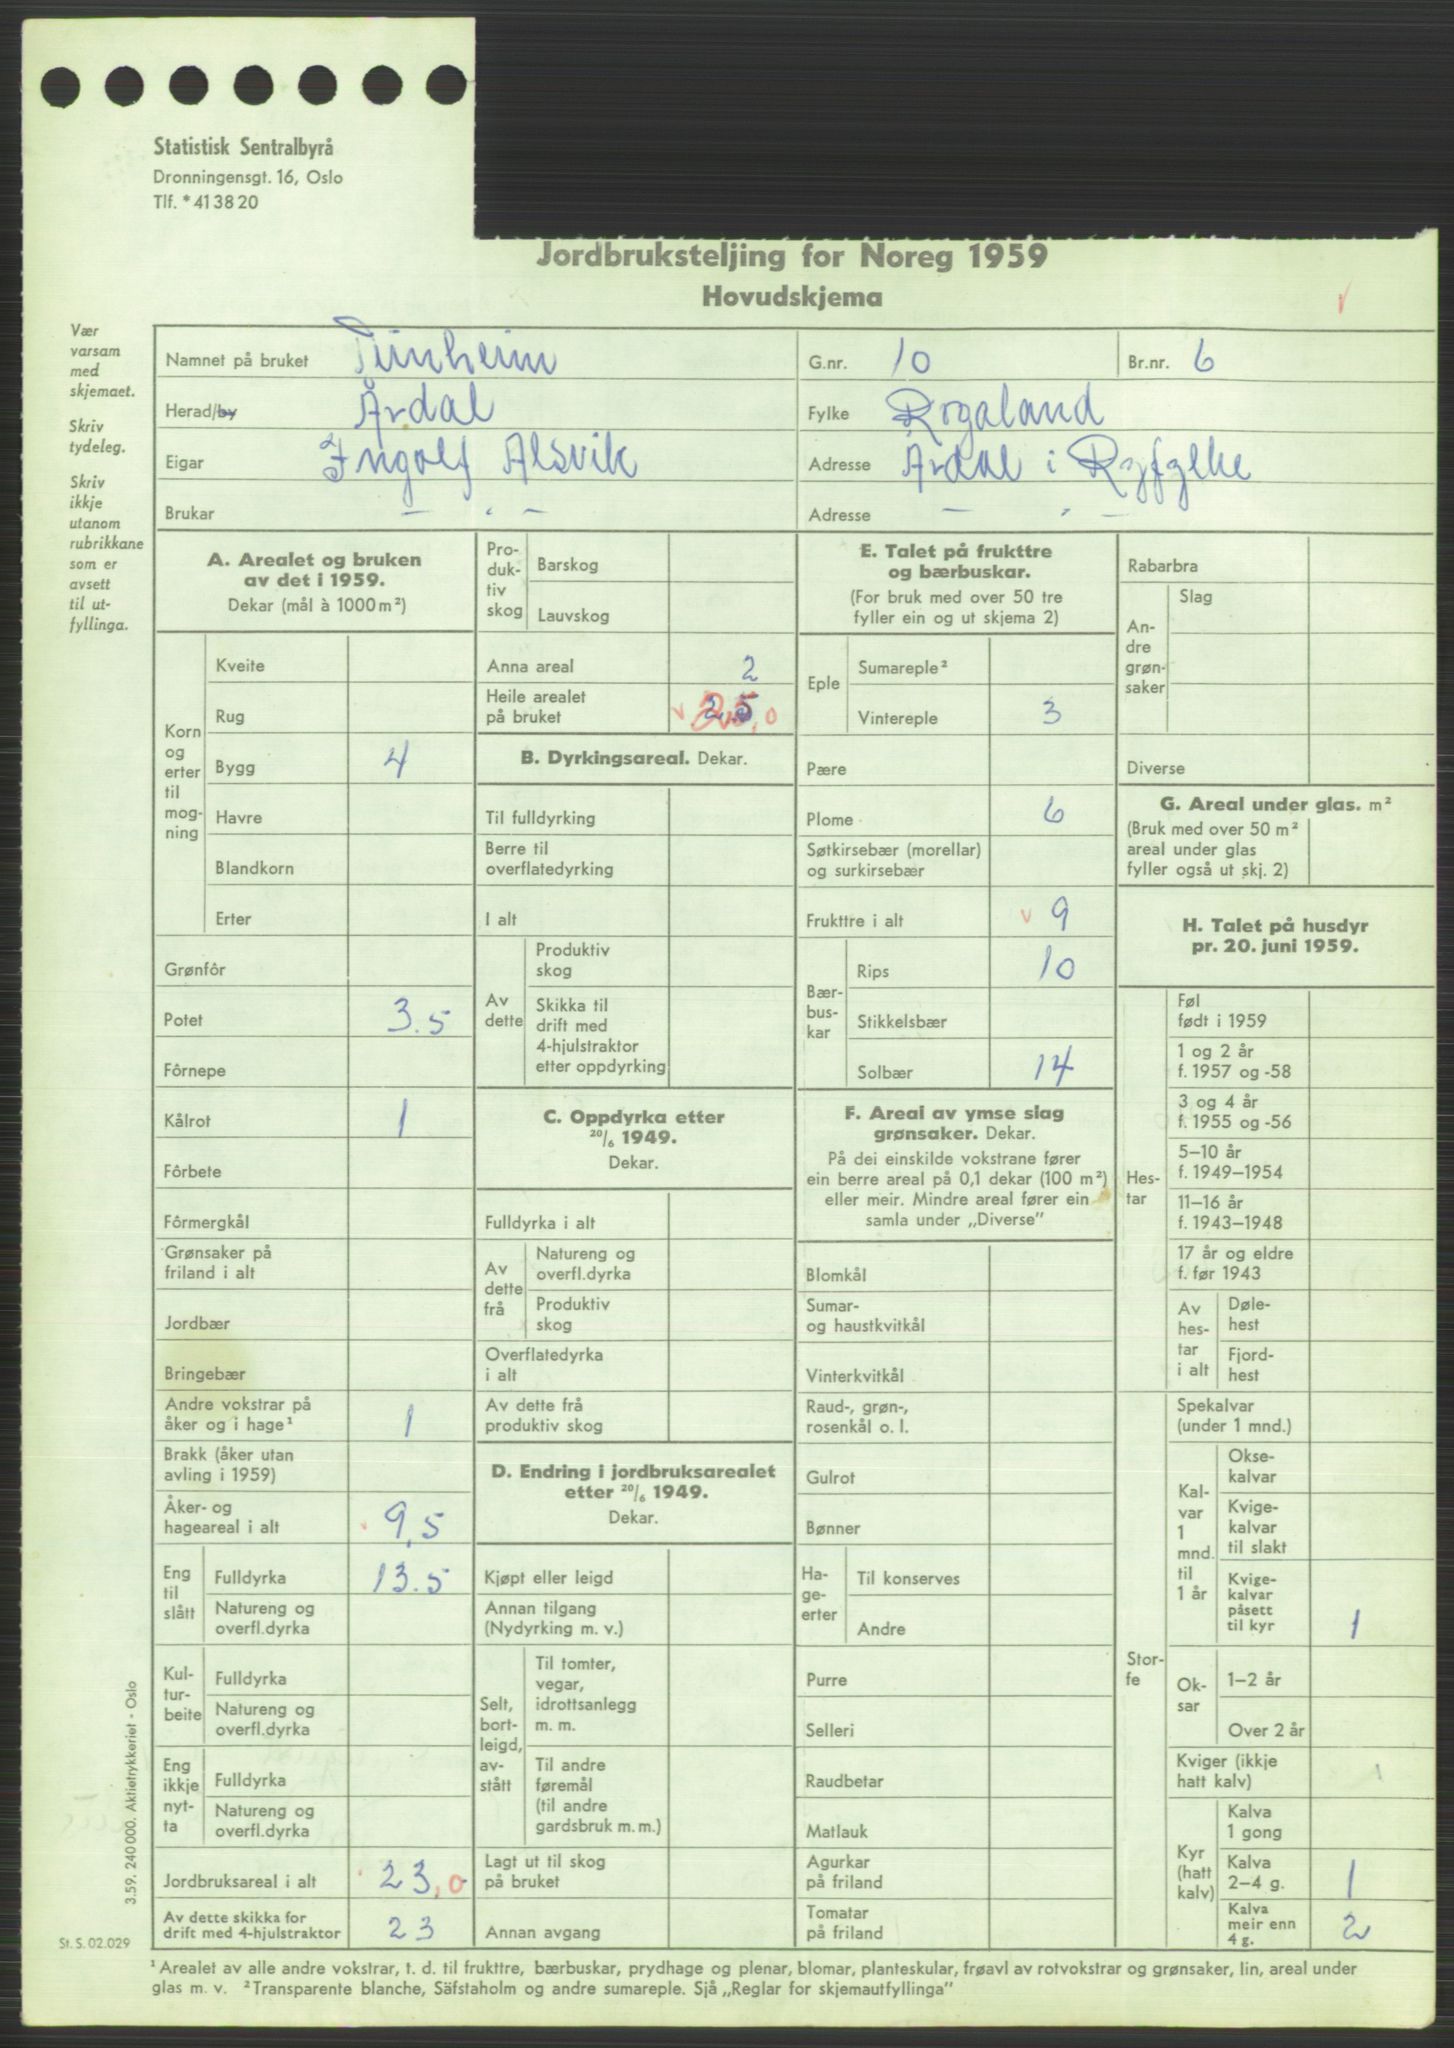 Statistisk Sentralbyrå
Dronningensgt. 16, Oslo
Tlf. *41 38 20
Jordbruksteljing for Noreg 1959
Hovudskjema
Vær
varsam
med
skjemaet.
Skriv
tydeleg.
Skriv
ikkje
utanom
rubrikkane
som er
avsett
til ut-
fyllinga.
Namnet på bruket Tunheim G.nr. 10 Br.nr. 6
Herad/by Årdal Fylke Rogaland
Eigar Ingolf Alsvik Adresse Årdal i Ryfylke
Brukar — " — Adresse — " —
A. Arealet og bruken
av det i 1959.
Dekar (mål à 1000 m²)
Korn
og
erter
til
mog-
ning
Kveite
Rug
Bygg 4
Havre
Blandkorn
Erter
Grønfôr
Potet 3.5
Fôrnepe
Kålrot 1
Fôrbete
Fôrmergkål
Grønsaker på
friland i alt
Jordbær
Bringebær
Andre vokstrar på
åker og i hage¹ 1
Brakk (åker utan
avling i 1959)
Åker- og
hageareal i alt 9,5
Eng
til
slått
Fulldyrka 13.5
Natureng og
overfl.dyrka
Kul-
tur-
beite
Fulldyrka
Natureng og
overfl.dyrka
Eng
ikkje
nyt-
ta
Fulldyrka
Natureng og
overfl.dyrka
Jordbruksareal i alt 23,0
Av dette skikka for
drift med 4-hjulstraktor 23
Pro-
duk-
tiv
skog
Barskog
Lauvskog
Anna areal 2
Heile arealet
på bruket 25,0
B. Dyrkingsareal. Dekar.
Til fulldyrking
Berre til
overflatedyrking
I alt
Av
dette
Produktiv
skog
Skikka til
drift med
4-hjulstraktor
etter oppdyrking
C. Oppdyrka etter
20/6 1949.
Dekar.
Fulldyrka i alt
Av
dette
frå
Natureng og
overfl.dyrka
Produktiv
skog
Overflatedyrka
i alt
Av dette frå
produktiv skog
D. Endring i jordbruksarealet
etter 20/6 1949.
Dekar.
Kjøpt eller leigd
Annan tilgang
(Nydyrking m. v.)
Selt,
bort-
leigd,
av-
stått
Til tomter,
vegar,
idrottsanlegg
m. m.
Til andre
føremål
(til andre
gardsbruk m. m.)
Lagt ut til skog
på bruket
Annan avgang
E. Talet på frukttre
og bærbuskar.
(For bruk med over 50 tre
fyller ein og ut skjema 2)
Eple
Sumareple²
Vintereple 3
Pære
Plome 6
Søtkirsebær (morellar)
og surkirsebær
Frukttre i alt 9
Bær-
bus-
kar
Rips 10
Stikkelsbær
Solbær 14
F. Areal av ymse slag
grønsaker. Dekar.
På dei einskilde vokstrane fører
ein berre areal på 0,1 dekar (100 m²)
eller meir. Mindre areal fører ein
samla under „Diverse”
Blomkål
Sumar-
og haustkvitkål
Vinterkvitkål
Raud-, grøn-,
rosenkål o. l.
Gulrot
Bønner
Ha-
ge-
erter
Til konserves
Andre
Purre
Selleri
Raudbetar
Matlauk
Agurkar
på friland
Tomatar
på friland
Rabarbra
An-
dre
grøn-
saker
Slag
Diverse
G. Areal under glas. m²
(Bruk med over 50 m²
areal under glas
fyller også ut skj. 2)
H. Talet på husdyr
pr. 20. juni 1959.
Hes-
tar
Føl
født i 1959
1 og 2 år
f. 1957 og -58
3 og 4 år
f. 1955 og -56
5–10 år
f. 1949–1954
11–16 år
f. 1943–1948
17 år og eldre
f. før 1943
Av
hes-
tar
i alt
Døle-
hest
Fjord-
hest
Stor-
fe
Spekalvar
(under 1 mnd.)
Kal-
var
1
mnd.
til
1 år
Okse-
kalvar
Kvige-
kalvar
til slakt
Kvige-
kalvar
påsett
til kyr 1
Ok-
sar
1–2 år
Over 2 år
Kviger (ikkje
hatt kalv) 1
Kyr
(hatt
kalv)
Kalva
1 gong
Kalva
2–4 g. 1
Kalva
meir enn
4 g. 2
3.59. 240 000. Aktietrykkeriet - Oslo
St. S. 02.029
¹ Arealet av alle andre vokstrar, t. d. til frukttre, bærbuskar, prydhage og plenar, blomar, planteskular, frøavl av rotvokstrar og grønsaker, lin, areal under
glas m. v. ² Transparente blanche, Säfstaholm og andre sumareple. Sjå „Reglar for skjemautfyllinga”